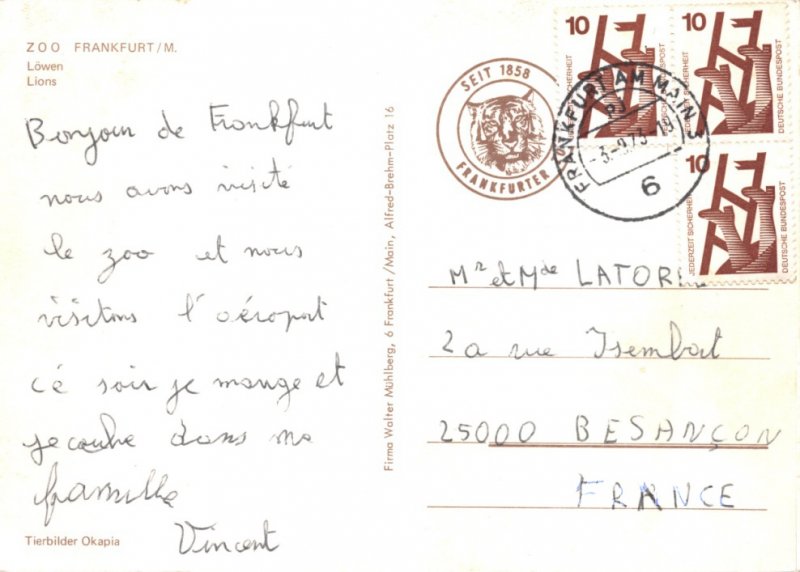 ZOO FRANKFURT/M.
Löwen
Lions
Bonjour de Frankfurt
nous avons visité
le zoo et nous
visitons l'aéroport
cé soir je mange et
je couche dans ma
famille
Vincent
Tierbilder Okapia
Firma Walter Mühlberg, 6 Frankfurt/Main, Alfred-Brehm-Platz 16
SEIT 1858
FRANKFURTER
FRANKFURT AM MAIN
6
10
JEDERZEIT SICHERHEIT
DEUTSCHE BUNDESPOST
10
DEUTSCHE BUNDESPOST
10
JEDERZEIT SICHERHEIT
DEUTSCHE BUNDESPOST
Mr et Mde
2a rue Isembart
25000 BESANÇON
FRANCE